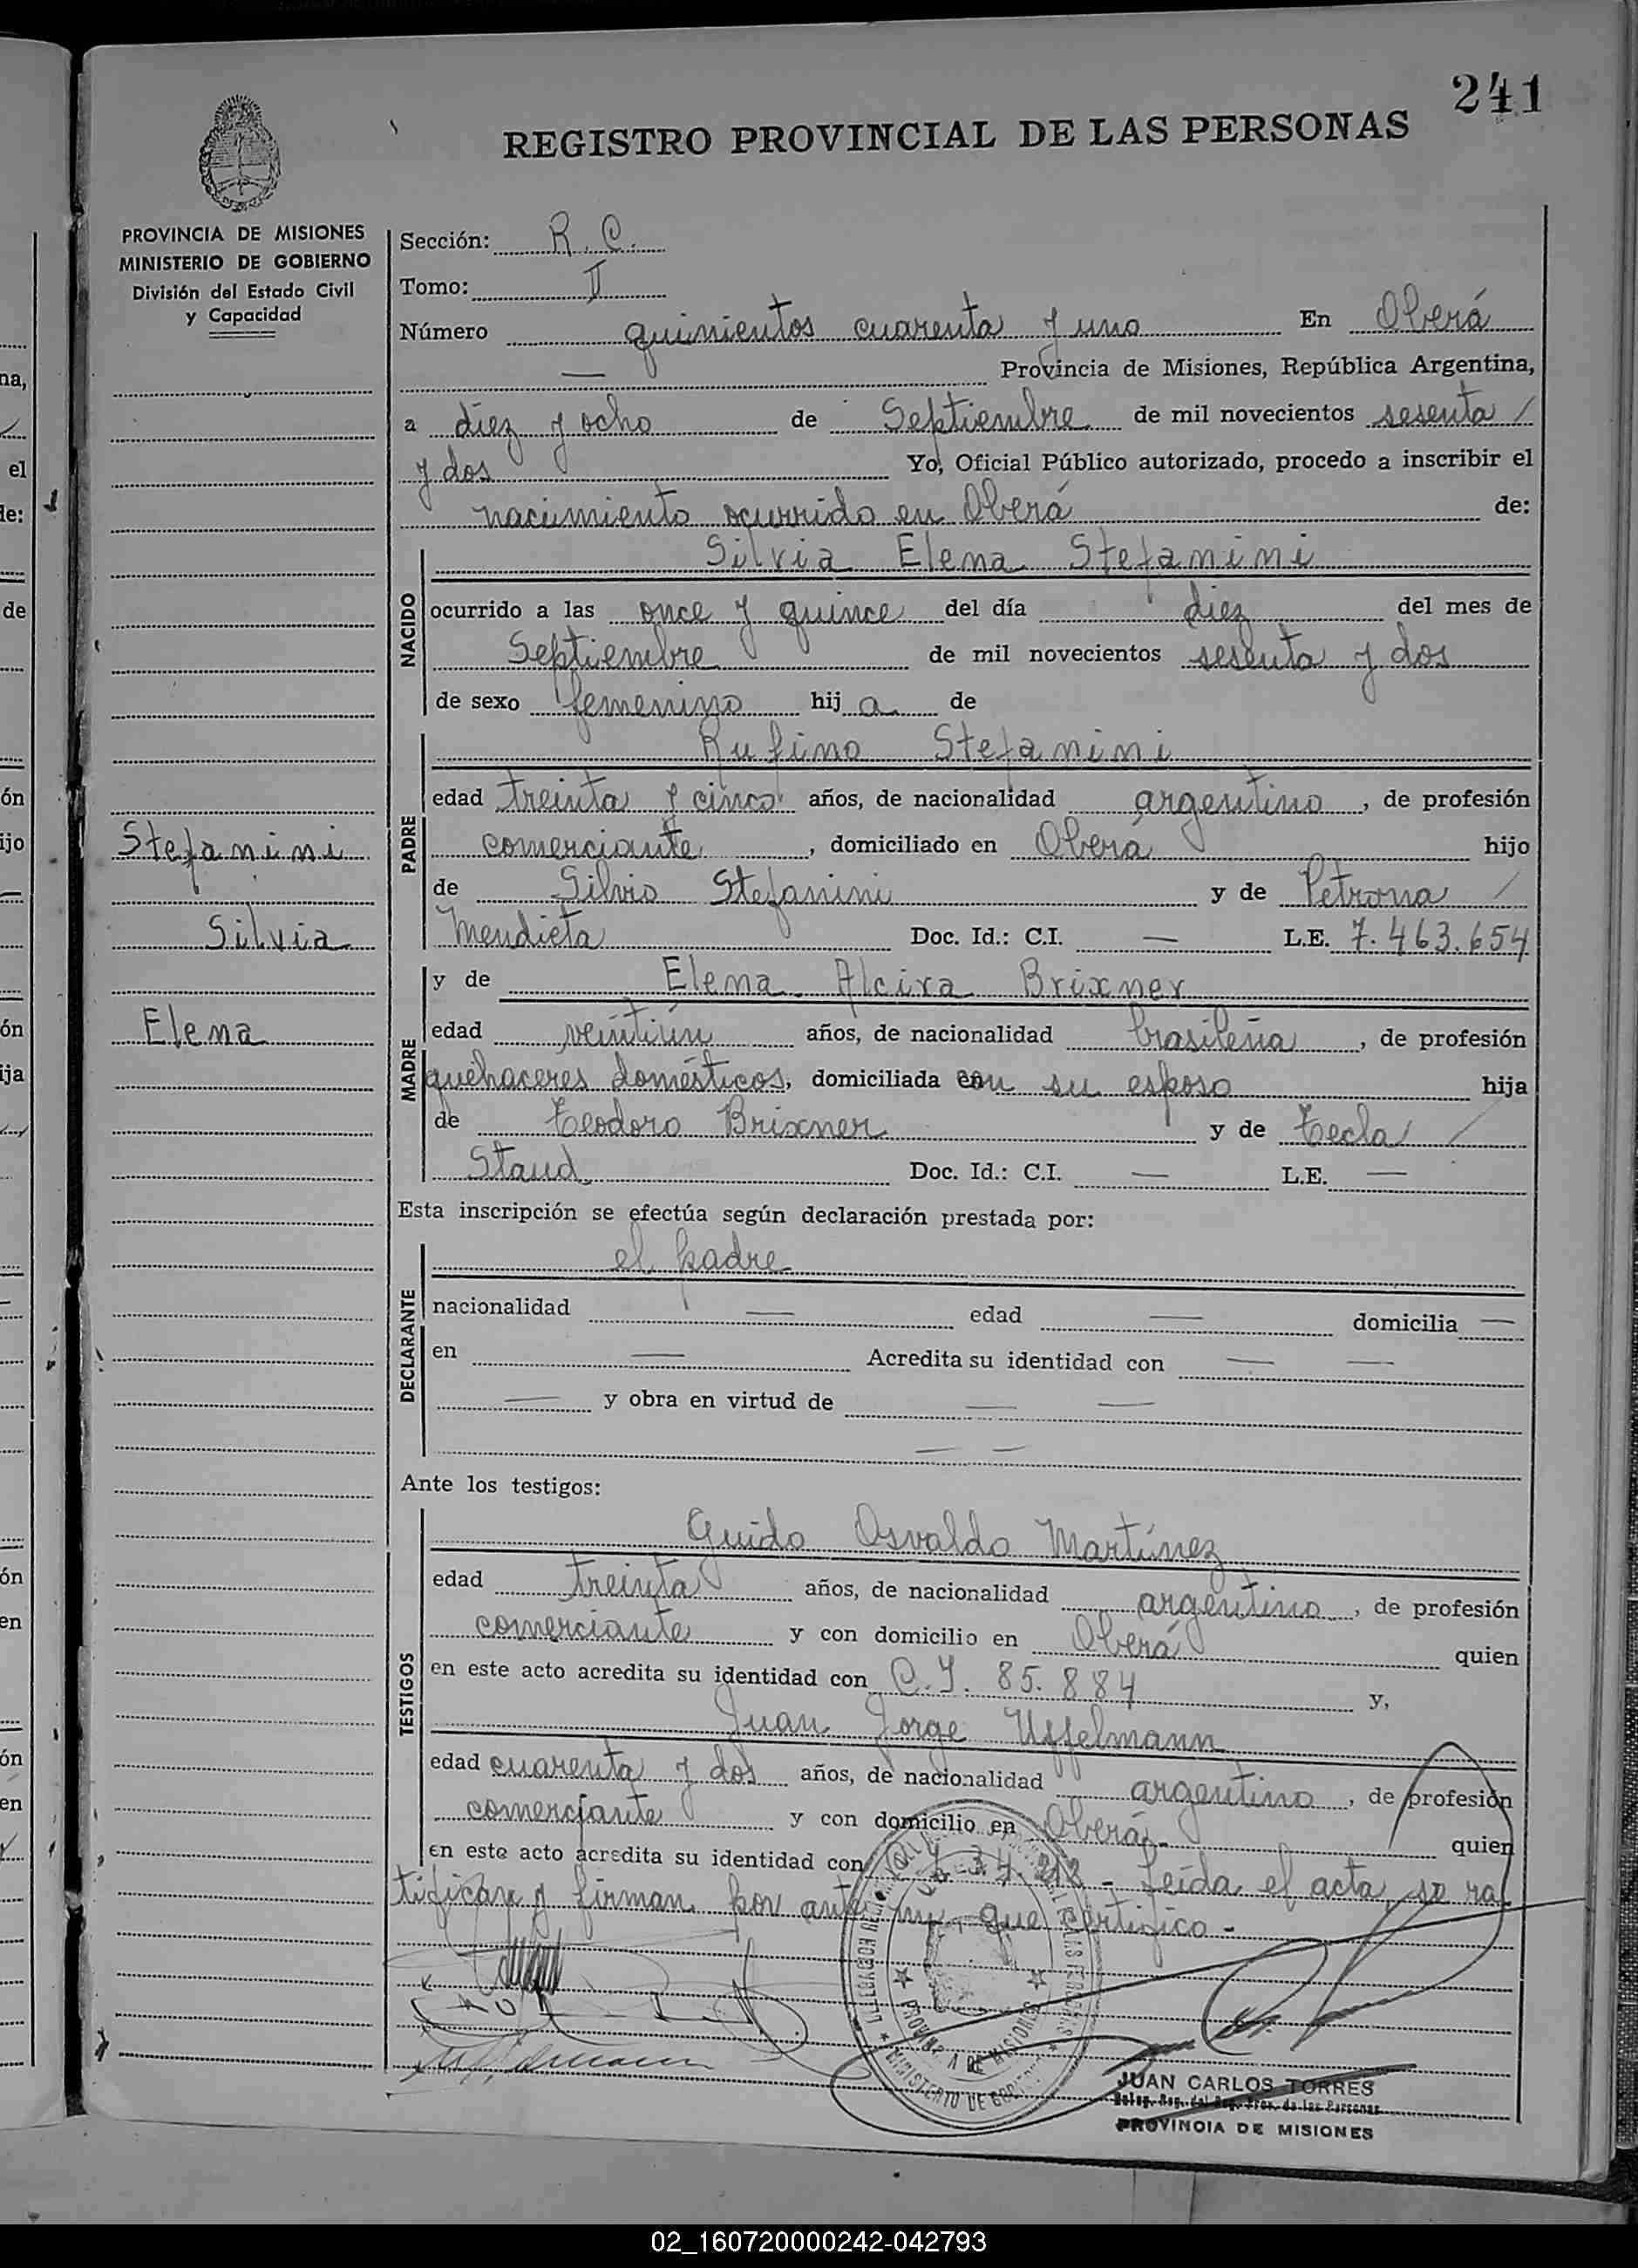 241
REGISTRO PROVINCIAL DE LAS PERSONAS
PROVINCIA DE MISIONES
MINISTERIO DE GOBIERNO
División del Estado Civil
y Capacidad
Sección: R. C.
Tomo: II
Número quinientos cuarenta y uno En Oberá
— Provincia de Misiones, República Argentina,
a diez y ocho de Septiembre de mil novecientos sesenta /
y dos Yo, Oficial Público autorizado, procedo a inscribir el
nacimiento ocurrido en Oberá de:
NACIDO
Silvia Elena Stefanini
ocurrido a las once y quince del día diez del mes de
Septiembre de mil novecientos sesenta y dos
de sexo femenino hij a de
PADRE
Rufino Stefanini
edad treinta y cinco años, de nacionalidad argentino, de profesión
comerciante, domiciliado en Oberá hijo
de Silvio Stefanini y de Petrona /
Mendieta Doc. Id.: C.I. — L.E. 7.463.654
Stefanini
Silvia
Elena
MADRE
y de Elena Alcira Brixner
edad veintiún años, de nacionalidad brasileña, de profesión
quehaceres domésticos, domiciliada con su esposo hija
de Teodoro Brixner y de Tecla /
Staud Doc. Id.: C.I. — L.E. —
Esta inscripción se efectúa según declaración prestada por:
DECLARANTE
el padre
nacionalidad — edad — domicilia —
en — Acredita su identidad con — —
— y obra en virtud de — —
— —
Ante los testigos:
TESTIGOS
Guido Osvaldo Martínez
edad treinta años, de nacionalidad argentino, de profesión
comerciante y con domicilio en Oberá quien
en este acto acredita su identidad con C.I. 85.884 y,
Juan Jorge Uffelmann
edad cuarenta y dos años, de nacionalidad argentino, de profesión
comerciante y con domicilio en Oberá,- quien
en este acto acredita su identidad con - Leída el acta, se ra
tifican y firman por ante mi, que certifico -
PROVINCIA DE MISIONES
MINISTERIO DE GOBIERNO
JUAN CARLOS TORRES
Deleg. Reg. del Reg. Prov. de las Personas
PROVINCIA DE MISIONES
na,
el
de:
de
ón
ijo
ón
ija
ón
en
ón
en
02_160720000242-042793